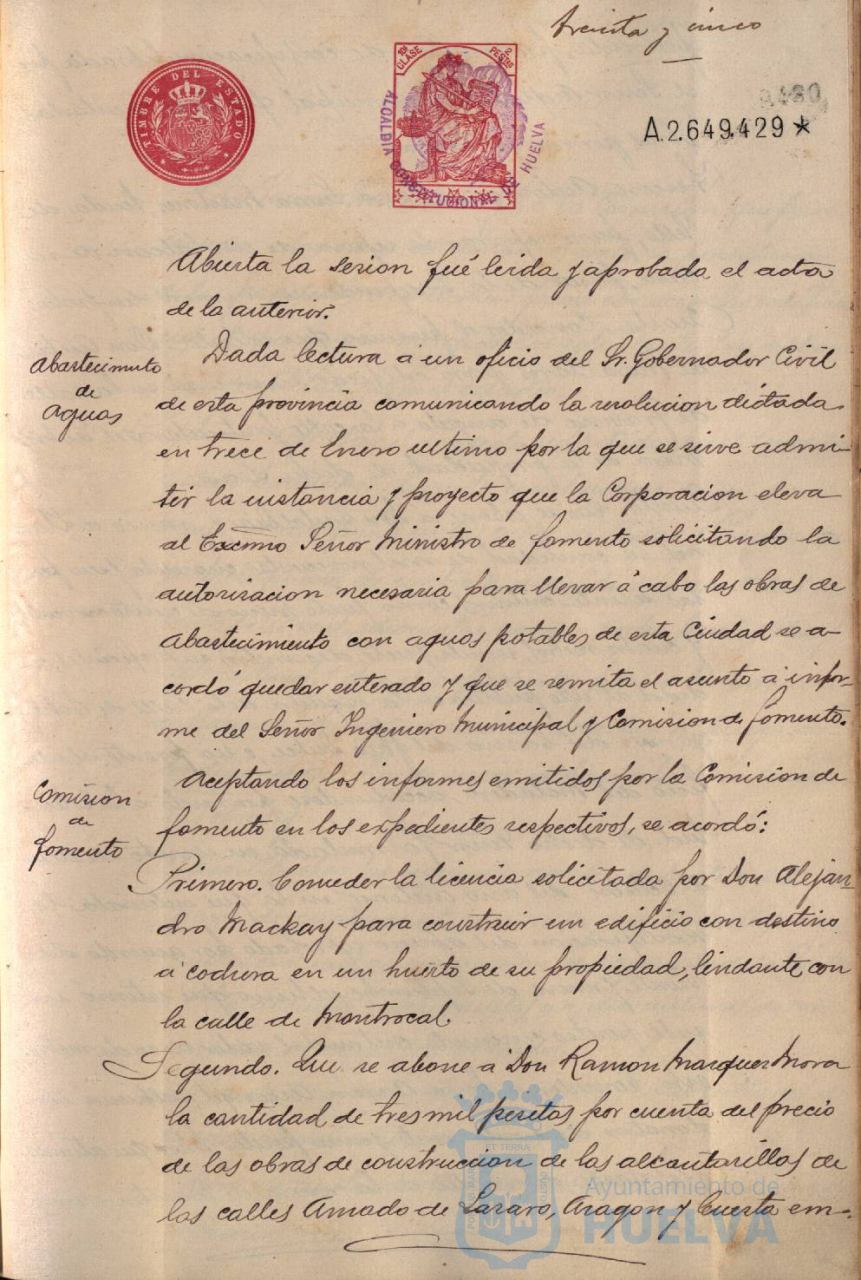 treinta y cinco
TIMBRE DEL ESTADO
10ª CLASE
2 PESETAS
ALCALDIA CONSTITUCIONAL DE HUELVA
A.2.649.429*
Abierta la sesion fué leida y aprobada el acta
de la anterior.
Abastecimto
de
aguas
Dada lectura á un oficio del Sr. Gobernador Civil
de esta provincia comunicando la resolucion dictada
en trece de Enero ultimo por la que se sirve admi-
tir la instancia y proyecto que la Corporacion eleva
al Excmo Señor Ministro de fomento solicitando la
autorisacion necesaria para llevar á cabo las obras de
abastecimiento con aguas potables de esta Ciudad se a-
cordó quedar enterado y que se remita el asunto á infor-
me del Señor Ingeniero Municipal y Comision de fomento.
Comision
de
fomento
Aceptando los informes emitidos por la Comision de
fomento en los expedientes respectivos, se acordó:
Primero. Conceder la licencia solicitada por Don Alejan-
dro Mackay para construir un edificio con destino
á cochera en un huerto de su propiedad, lindante con
la calle de Montrocal.
Segundo. Que se abone á Don Ramon Marquez Mora
la cantidad de tres mil pesetas por cuenta del precio
de las obras de construccion de las alcantarillas de
las calles Amado de Lazaro, Aragon y Cuesta em-
Ayuntamiento de
HUELVA